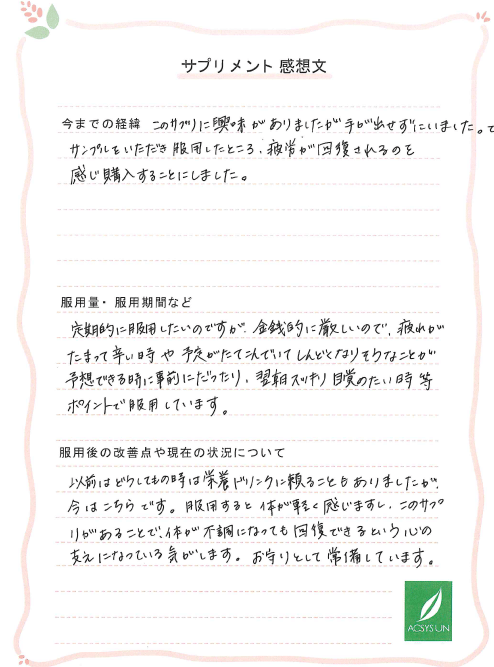 サプリメント 感想文
今までの経緯 このサプリに興味がありましたが手が出せずにいました。で
サンプルをいただき服用したところ、疲労が回復されるのを
感じ購入することにしました。
服用量・服用期間など
定期的に服用したいのですが、金銭的に厳しいので、疲れが
たまって辛い時や予定がたてこんでいてしんどくなりそうなことが
予想できる時に事前にだったり、翌朝スッキリ目覚めたい時等
ポイントで服用しています。
服用後の改善点や現在の状況について
以前はどうしてもの時は栄養ドリンクに頼ることもありましたが、
今はこちらです。服用すると体が軽く感じますし、このサプ
リがあることで、体が不調になっても回復できるという心の
支えになっている気がします。お守りとして常備しています。
ACSYSUN